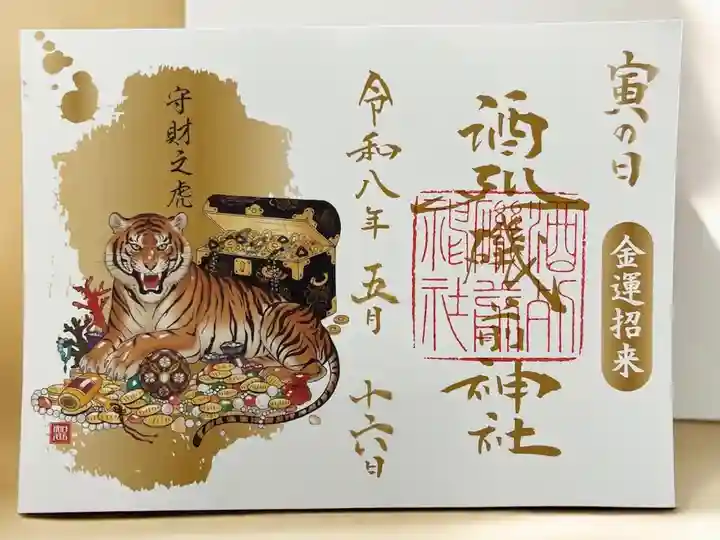 寅の日
金運招来
酒列磯前神社
令和八年五月十六日
守財之虎